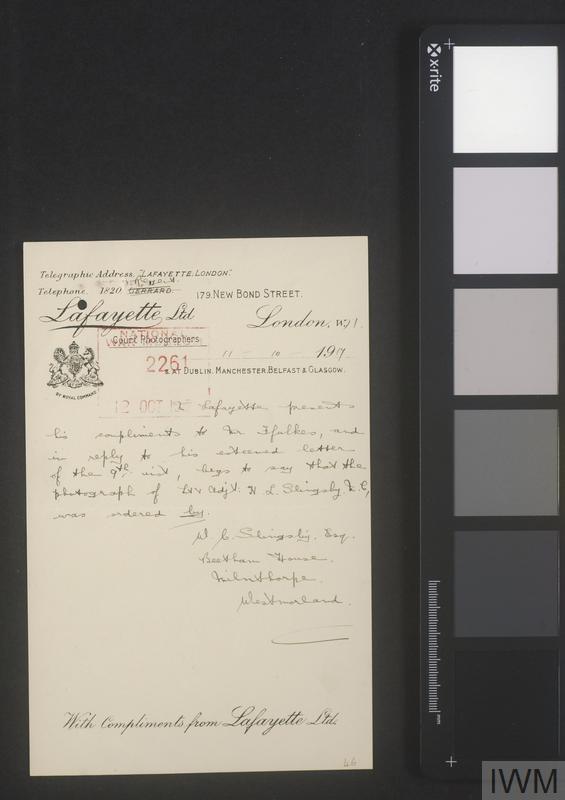 Telegraphic Address. "LAFAYETTE, LONDON."
Telephone. 1820. GERRARD.
179. NEW BOND STREET.
Lafayette Ltd
London, W.1.
Court Photographers
NATIONAL
WAR MUSEUM
2261
11 - 10 - 1917
& AT DUBLIN. MANCHESTER. BELFAST & GLASGOW.
BY ROYAL COMMAND
12 OCT
Lafayette presents
his compliments to Mr Ffoulkes, and
in reply to his esteemed letter
of the 9th inst, begs to say that the
photograph of Lt & Adjt: H. L. Slingsby. M.C,
was ordered by.
W. C. Slingsby. Esq.
Beetham House.
Milnthorpe.
Westmorland.
With Compliments from Lafayette Ltd.
46
x-rite
mm
IWM